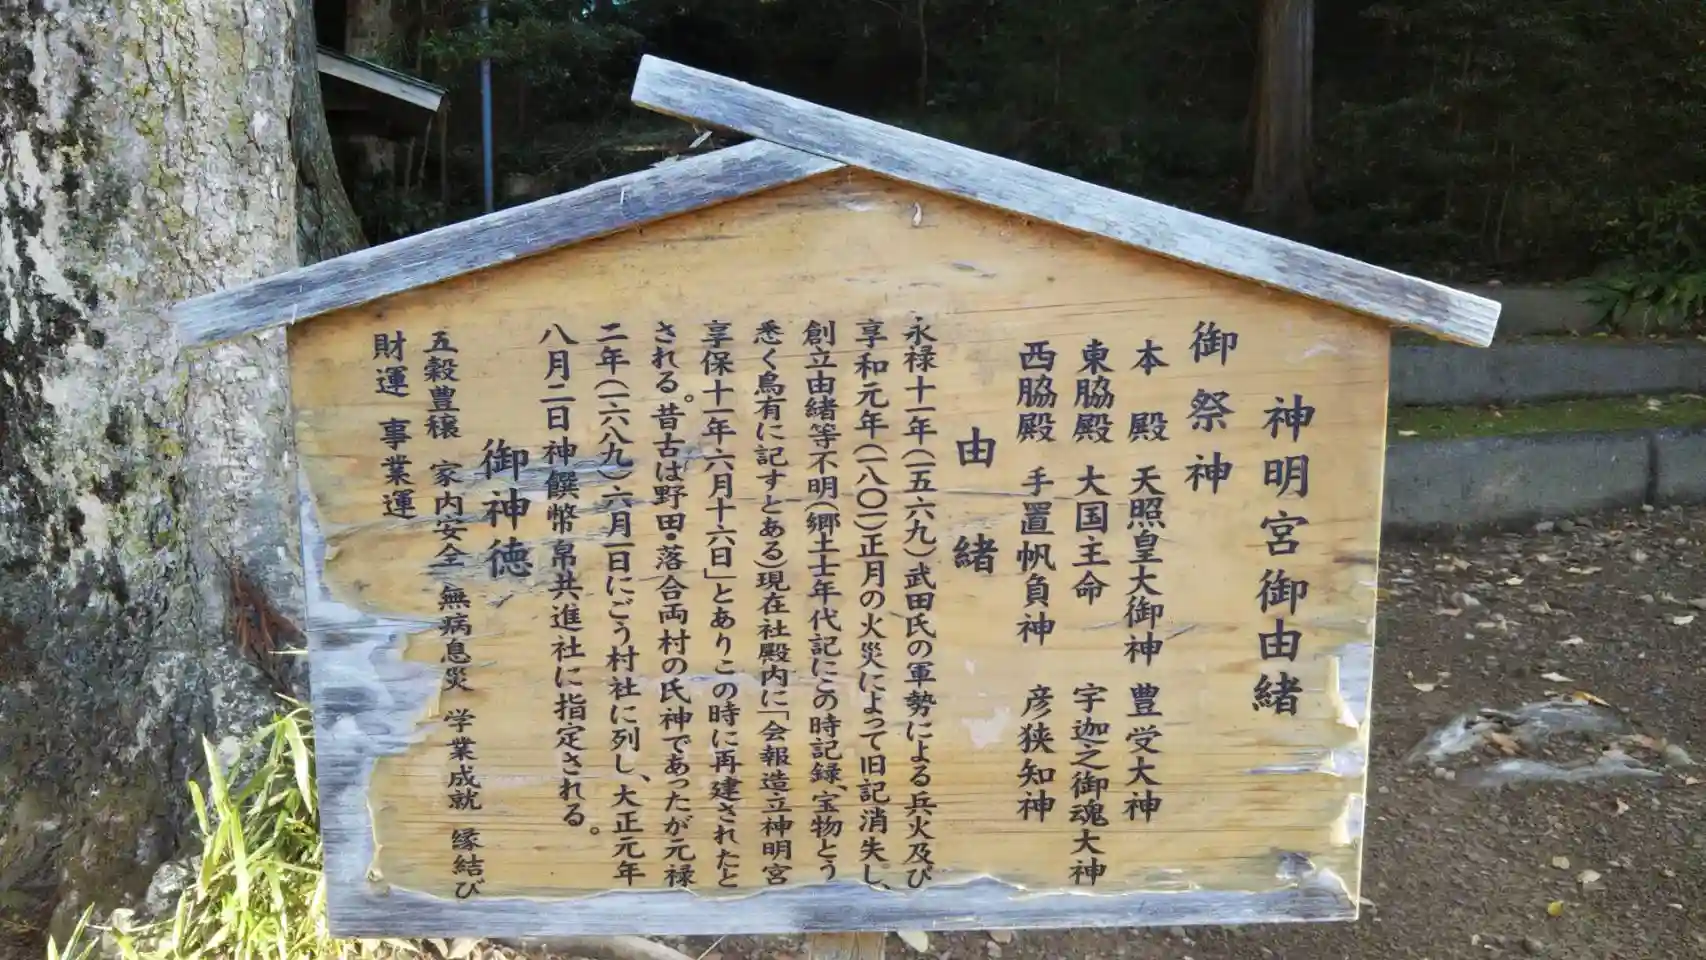 神明宮御由緒
御祭神
本殿 天照皇大御神 豊受大神
東脇殿 大国主命 宇迦之御魂大神
西脇殿 手置帆負神 彦狭知神
由緒
永禄十一年(一五六九)武田氏の軍勢による兵火及び
享和元年(一八〇一)正月の火災によって旧記消失し、
創立由緒等不明(郷土士年代記にこの時記録、宝物とう
悉く鳥有に記すとある)現在社殿内に「会報造立神明宮
享保十一年六月十六日」とありこの時に再建されたと
される。昔古は野田・落合両村の氏神であったが元禄
二年(一六八九)六月一日にごう村社に列し、大正元年
八月二日神饌幣帛共進社に指定される。
御神徳
五穀豊穣 家内安全 無病息災 学業成就 縁結び
財運 事業運